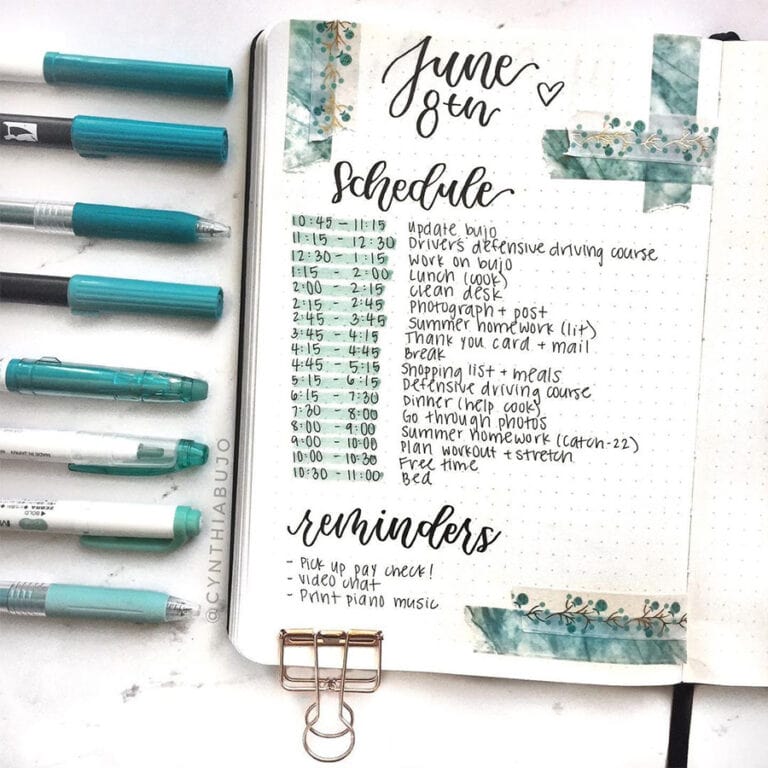 June
8th
schedule
10:45 - 11:15 update bujo
11:15 - 12:30 Drivers defensive driving course
12:30 - 1:15 work on bujo
1:15 - 2:00 Lunch (cook)
2:00 - 2:15 clean desk
2:15 - 2:45 Photograph + post
2:45 - 3:45 Summer homework (lit)
3:45 - 4:15 Thank you card + mail
4:15 - 4:45 Break
4:45 - 5:15 Shopping list + meals
5:15 - 6:15 Defensive driving course
6:15 - 7:30 Dinner (help cook)
7:30 - 8:00 Go through photos
8:00 - 9:00 Summer homework (catch-22)
9:00 - 10:00 Plan workout + stretch
10:00 - 10:30 Free time
10:30 - 11:00 Bed
reminders
- Pick up pay check!
- video chat
- Print piano music
@CYNTHIABUJO
MADE IN JAPAN
BOLD
ZEBRA